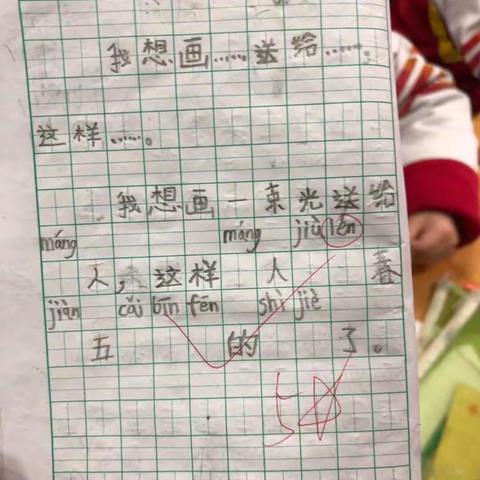 我想画……送给……。
这样……。
我想画一束光送给
máng máng jiù lén
人,这样 人 看
jiàn cǎi bīn fēn shì jiè
五 的 了。